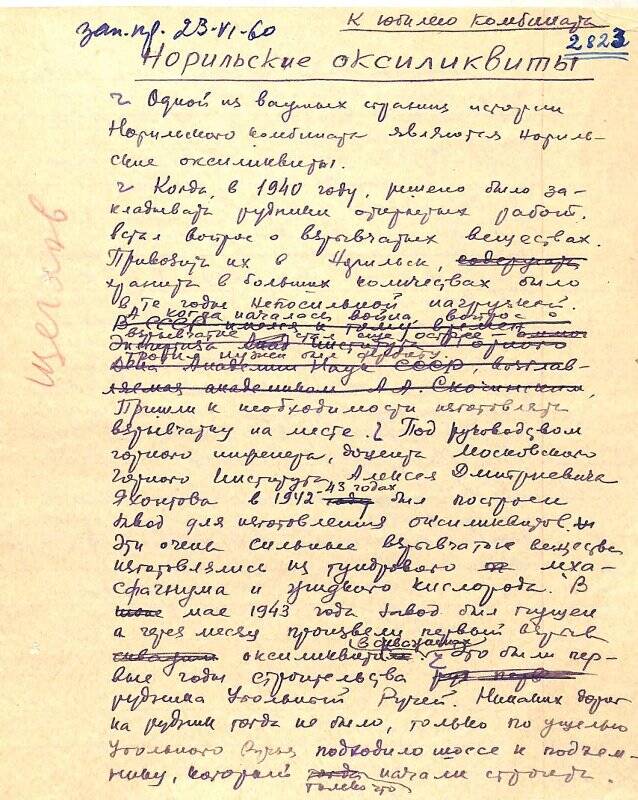 зап.пр. 23-VI-60
К юбилею комбината
2823
Норильские оксиликвиты
Одной из важных страниц истории
Норильского комбината являются Нориль-
ские оксиликвиты.
Когда, в 1940 году, решено было за-
кладывать рудники открытых работ.
встал вопрос о взрывчатых веществах.
Привозить их в Норильск, содержать
хранить в больших количествах было
в те годы непосильной нагрузкой.
А когда началась война, вопрос о
В СССР имелся к тому времени
взрывчатке встал еще острее
Института Горного
Тротил нужен был фронту.
Дела Академии Наук СССР, возглав-
ляемая академиком А.А. Скочинским,
Пришли к необходимости изготовлять
взрывчатку на месте. Под руководством
горного инженера, доцента Московского
Горного Института Алексея Дмитриевича
43 годах
Яхонтова в 1942- году был построен
завод для изготовления оксиликвитов.
Эти очень сильные взрывчатые вещества
изготовлялись из тундрового мха-
сфагнума и жидкого кислорода. В
июне мае 1943 года завод был пущен
а через месяц произвели первый взрыв
в скважинах
скважин оксиликвит Это были пер-
вые годы строительства
рудника Угольный Ручей. Никаких дорог
на рудник тогда не было, только по ущелью
Угольного Ручья подходило шоссе к подъем-
нику, который тогда начали строить.
только что
щегаяв